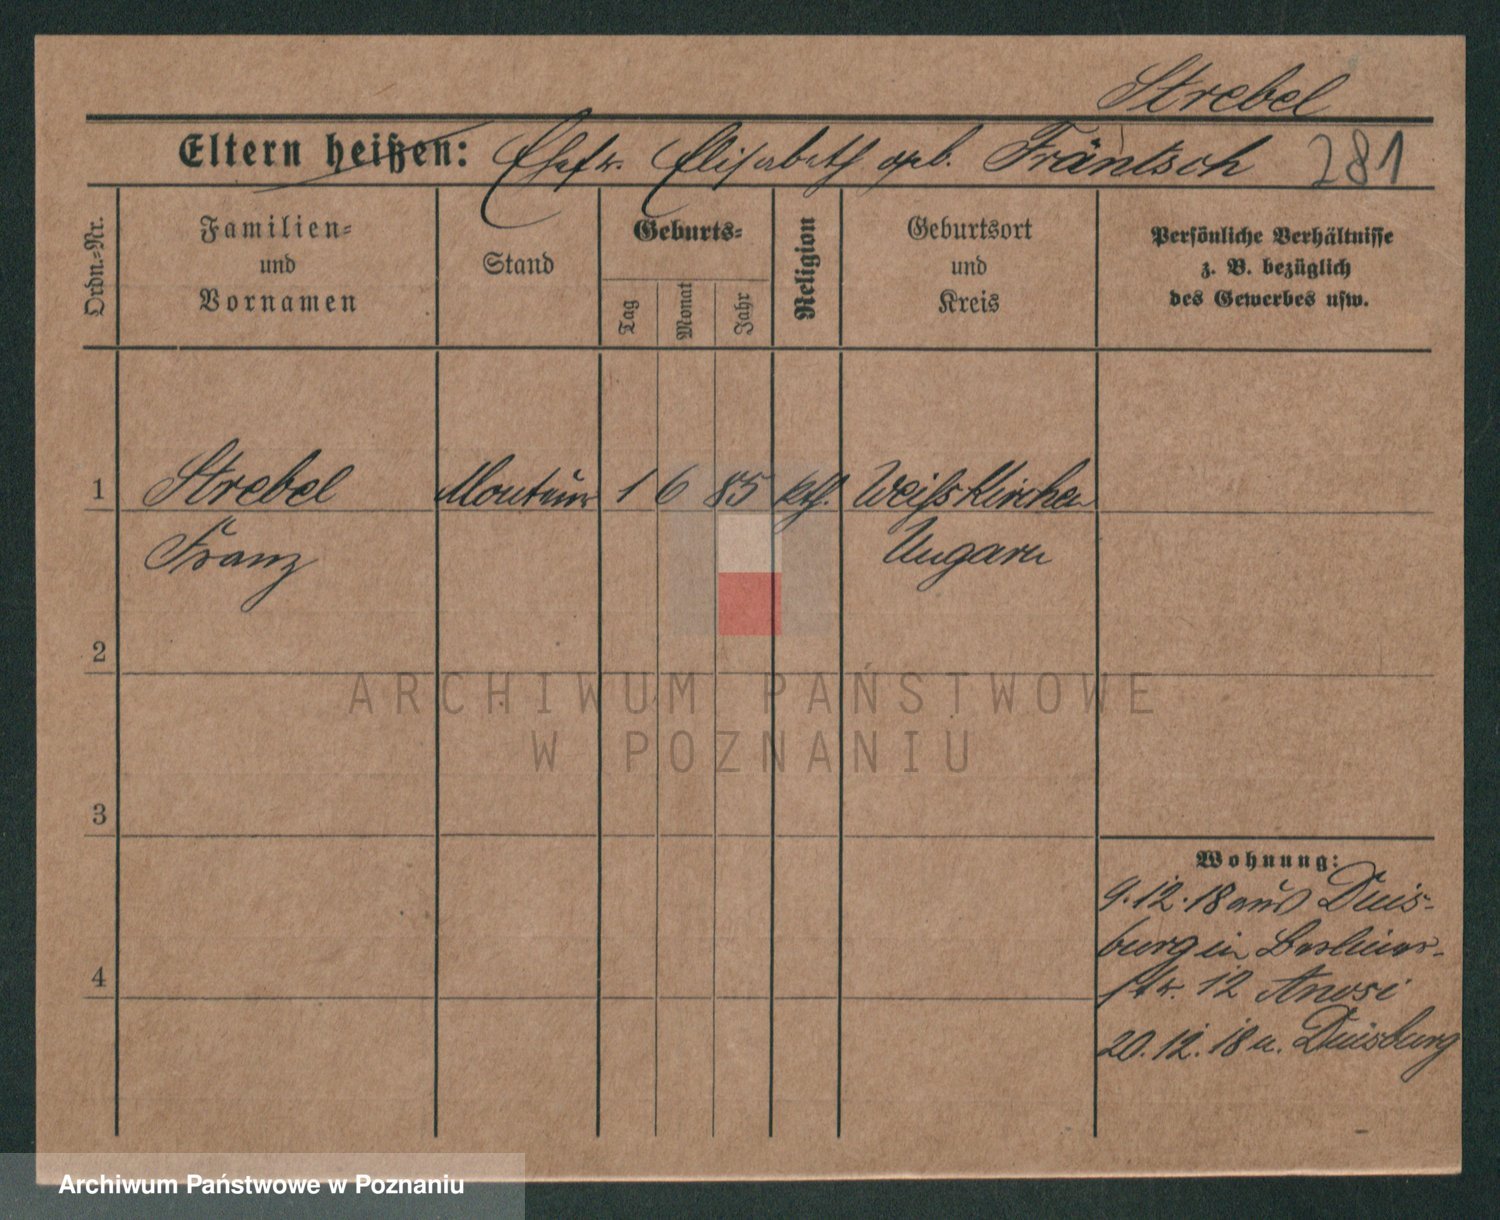 Strebel
Eltern heißen: Ehefr. Elisabeth geb. Fräntsch 281
Ordn.-Nr.
Familien-
und
Vornamen
Stand
Geburts-
Tag
Monat
Jahr
Religion
Geburtsort
und
Kreis
Persönliche Verhältnisse
z. B. bezüglich
des Gewerbes usw.
1 Strebel Monteur 1 6 85 kth. Weißkirchen
Franz Ungarn
2
3
4
Wohnung:
9.12.18 aus Duis-
burg in Berliner-
str. 12
20.12.18 n. Duisburg
ARCHIWUM PAŃSTWOWE
W POZNANIU
Archiwum Państwowe w Poznaniu